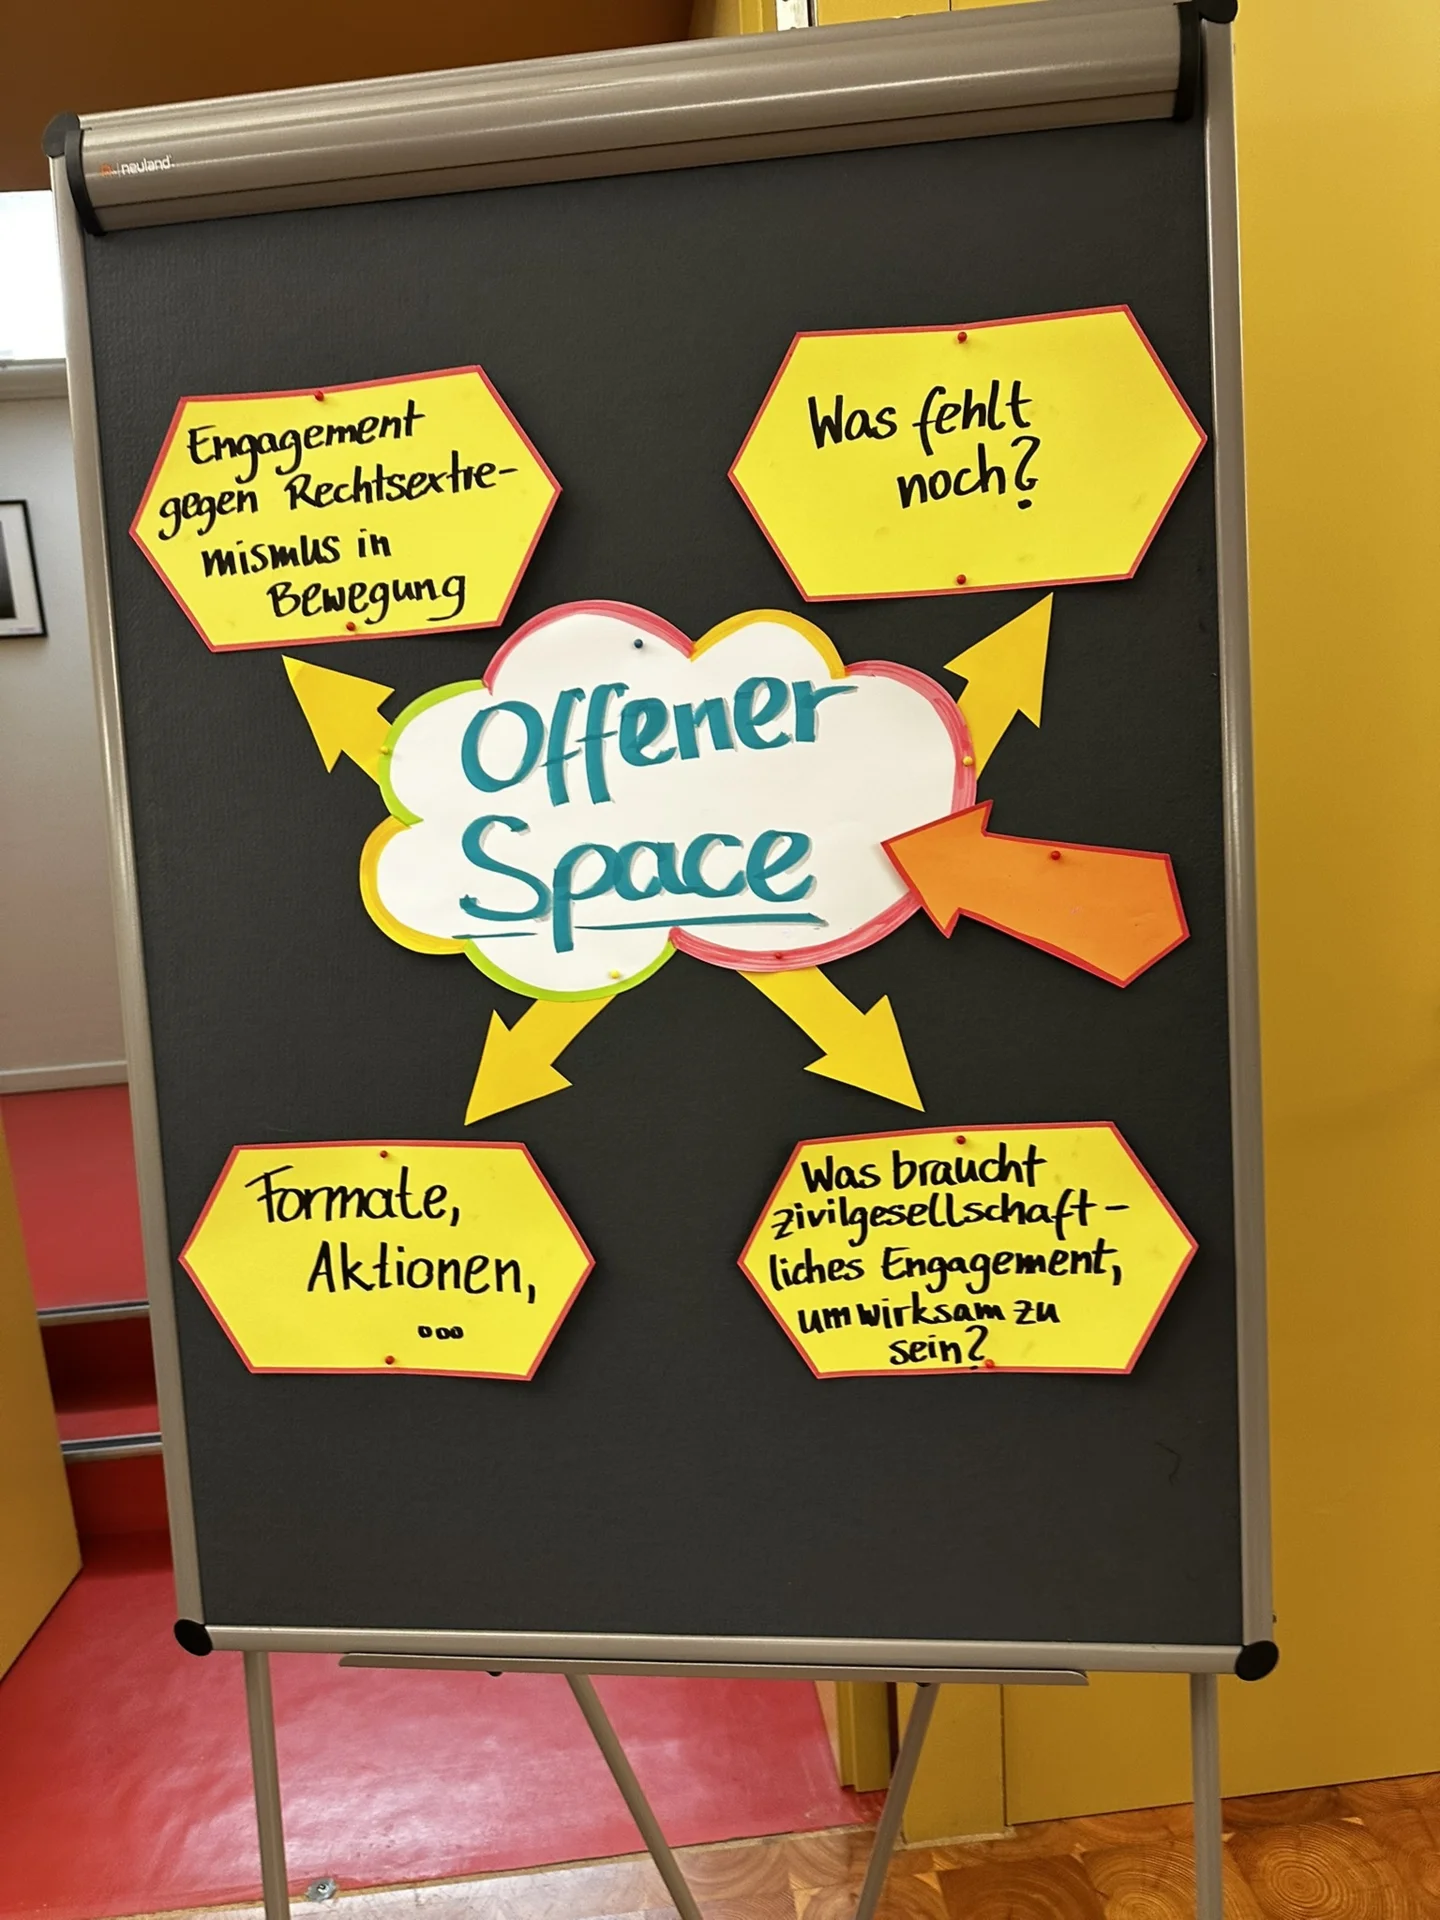 neuland
Engagement
gegen Rechtsextre-
mismus in
Bewegung
Was fehlt
noch?
Offener
Space
Formate,
Aktionen,
...
Was braucht
zivilgesellschaft-
liches Engagement,
um wirksam zu
sein?